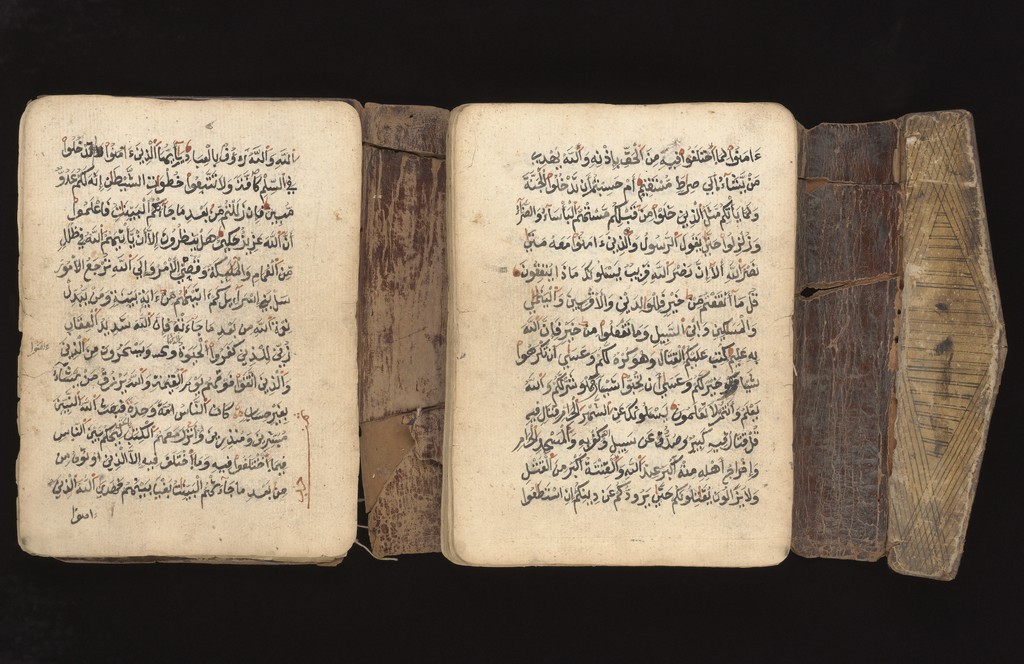 الله والله رءوف بالعباد يأيها الذين ءامنوا ادخلوا
في السلم كافة ولا تتبعوا خطوت الشيطان إنه لكم عدو
مبين فإن زللتم من بعد ما جاءتكم البينت فاعلموا
أن الله عزيز حكيم هل ينظرون إلا أن يأتيهم الله في ظلل
من الغمام والملئكة وقضي الأمر وإلى الله ترجع الأمور
سل بني إسراءيل كم ءاتينهم من ءاية بينة ومن يبدل
نعمة الله من بعد ما جاءته فإن الله شديد العقاب
زين للذين كفروا الحيوة الدنيا ويسخرون من الذين
ءامنوا
والذين اتقوا فوقهم يوم القيمة والله يرزق من يشاء
بغير حساب كان الناس أمة وحدة فبعث الله النبين
مبشرين ومنذرين وأنزل معهم الكتب ليحكم بين الناس
فيما اختلفوا فيه وما اختلف فيه إلا الذين أوتوه من
من بعد ما جاءتهم البينت بغيا بينهم فهدى الله الذين
ءامنوا
حزب
ءامنوا لما اختلفوا فيه من الحق بإذنه والله يهدي
من يشاء إلى صرط مستقيم أم حسبتم أن تدخلوا الجنة
ولما يأتكم مثل الذين خلوا من قبلكم مستهم البأساء والضراء
وزلزلوا حتى يقول الرسول والذين ءامنوا معه متى
نصر الله ألا إن نصر الله قريب يسءلونك ماذا ينفقون
قل ما أنفقتم من خير فللولدين والأقربين واليتمى
والمسكين وابن السبيل وما تفعلوا من خير فإن الله
به عليم كتب عليكم القتال وهو كره لكم وعسى أن تكرهوا
شيئا وهو خير لكم وعسى أن تحبوا شيئا وهو شر لكم والله
يعلم وأنتم لا تعلمون يسءلونك عن الشهر الحرام قتال فيه
قل قتال فيه كبير وصد عن سبيل الله وكفر به والمسجد الحرام
وإخراج أهله منه أكبر عند الله والفتنة أكبر من القتل
ولا يزالون يقتلونكم حتى يردوكم عن دينكم إن استطعوا